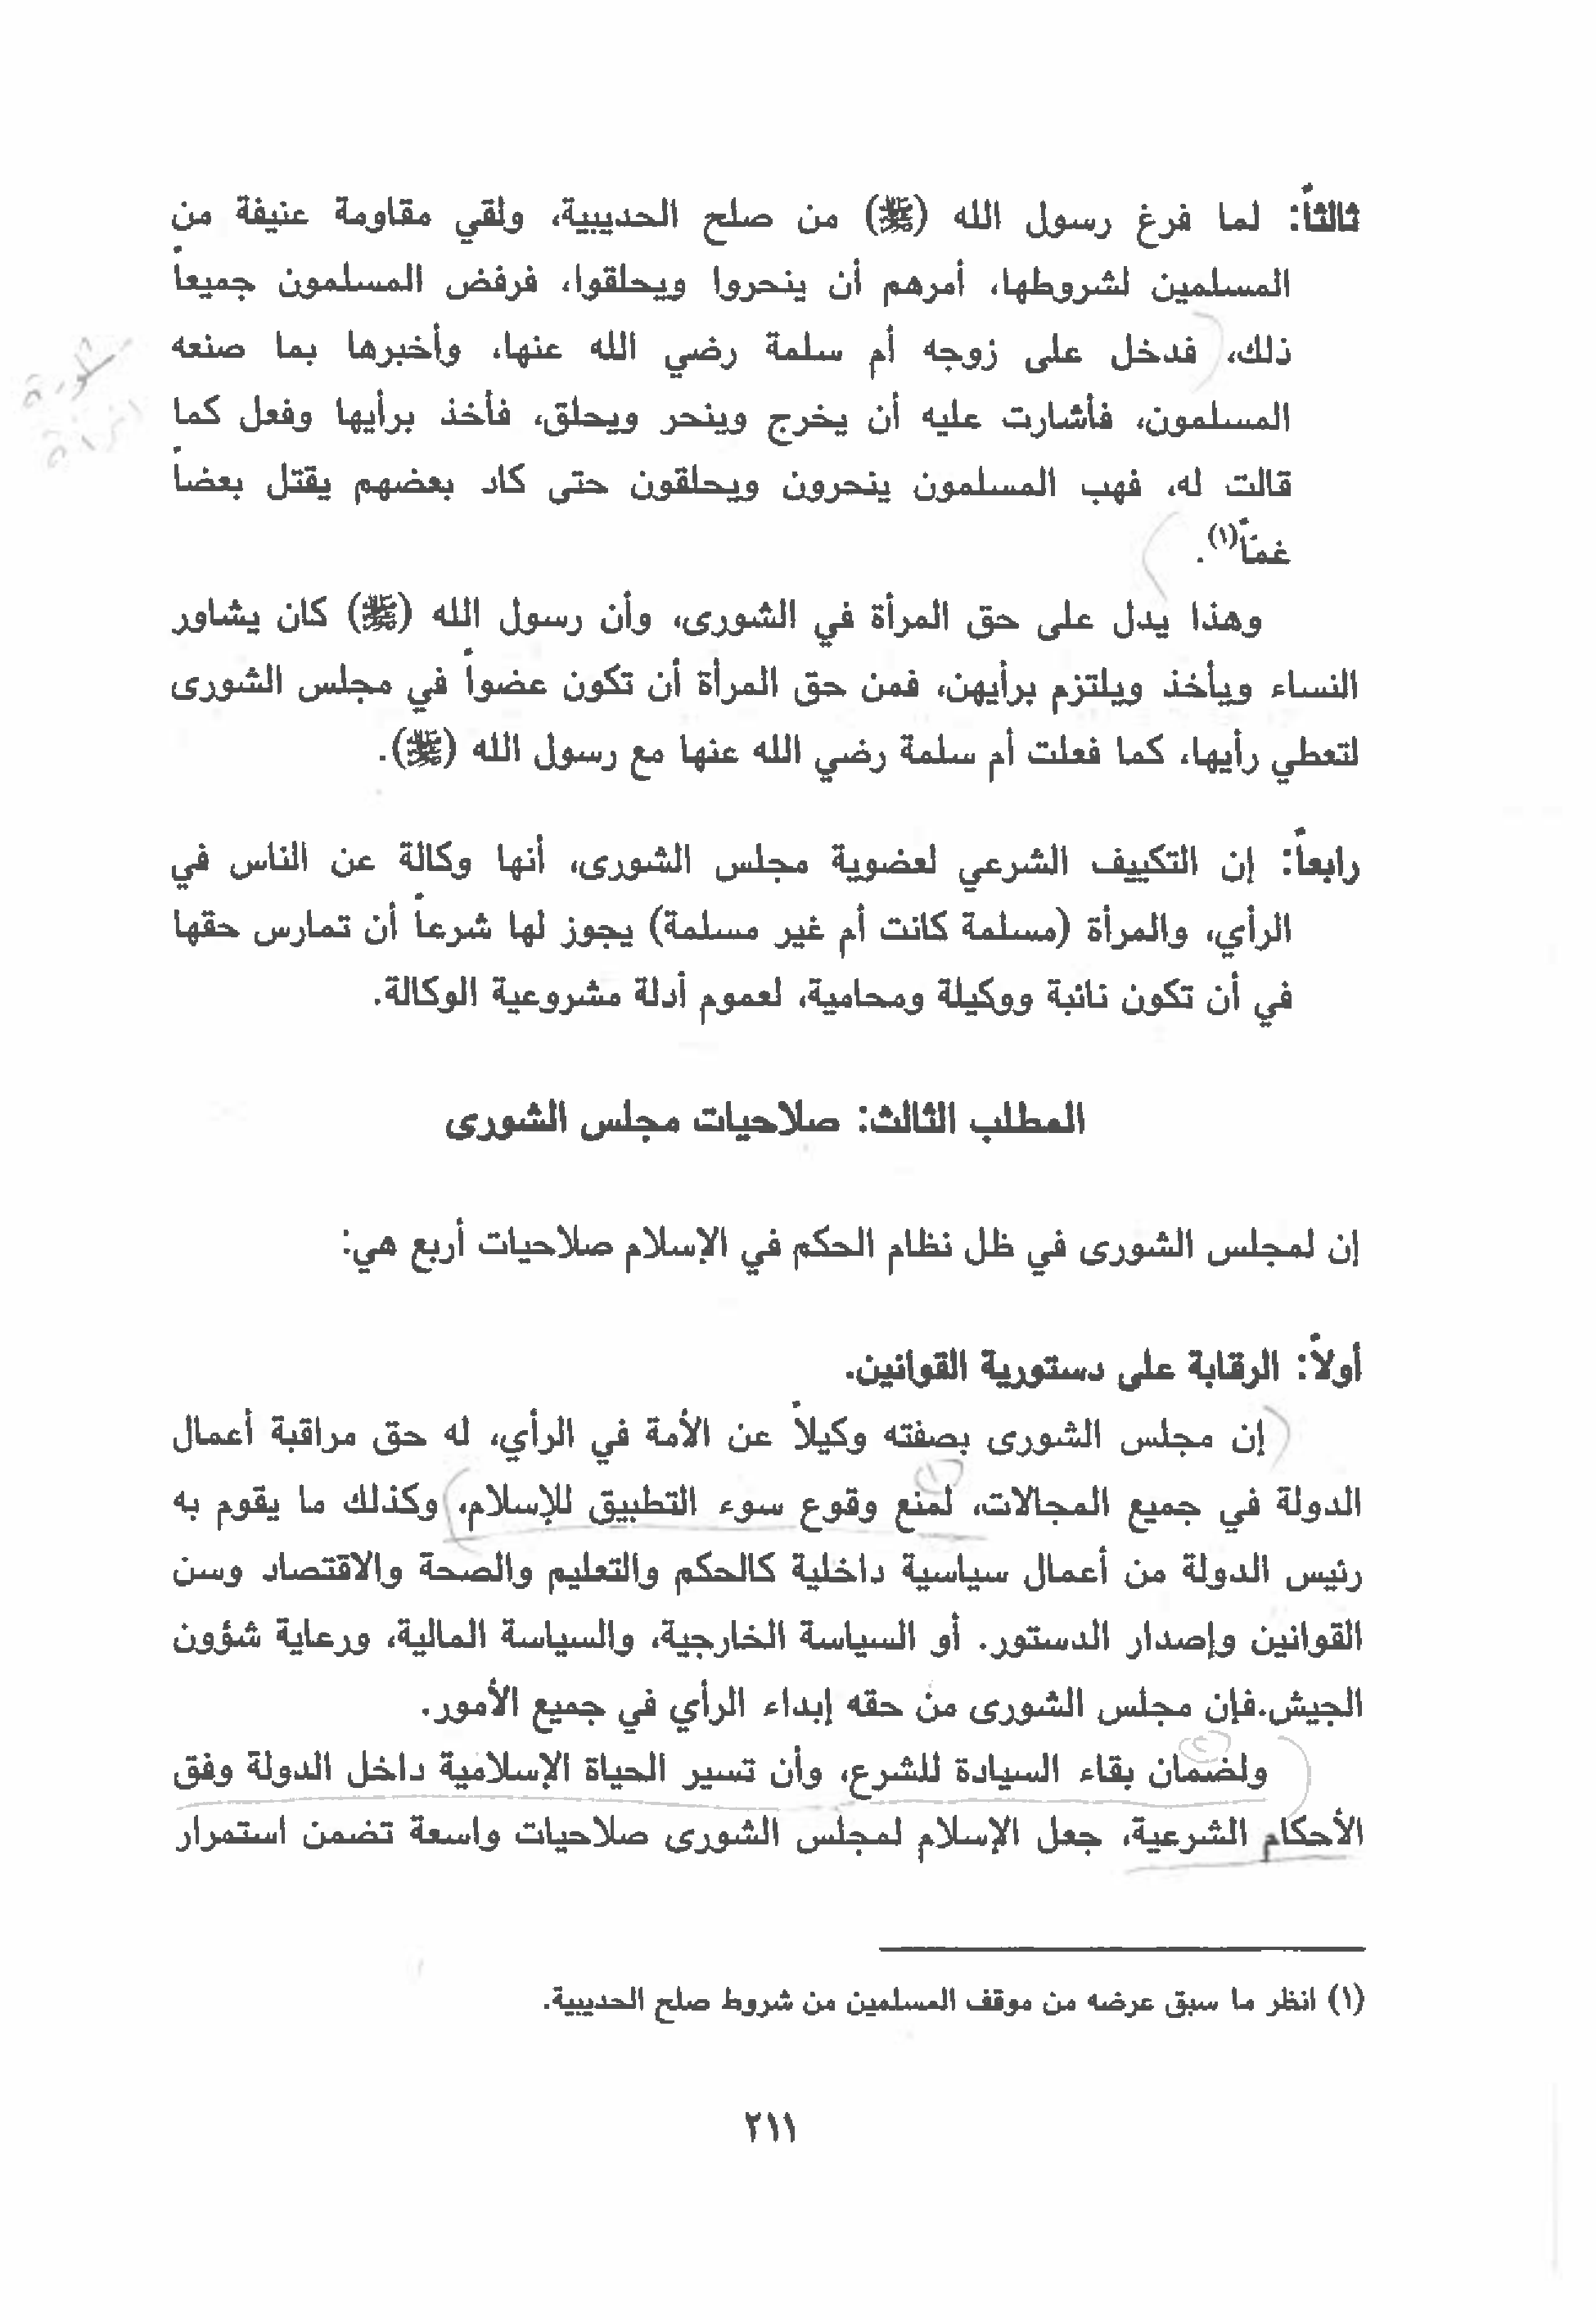 ثالثاً: لما فرغ رسول الله (ﷺ) من صلح الحديبية، ولقي مقاومة عنيفة من
المسلمين لشروطها، أمرهم أن ينحروا ويحلقوا، فرفض المسلمون جميعاً
ذلك، فدخل على زوجه أم سلمة رضي الله عنها، وأخبرها بما صنعه
المسلمون، فأشارت عليه أن يخرج وينحر ويحلق، فأخذ برأيها وفعل كما
قالت له، فهب المسلمون ينحرون ويحلقون حتى كاد بعضهم يقتل بعضاً
غمّاً(١).
وهذا يدل على حق المرأة في الشورى، وأن رسول الله (ﷺ) كان يشاور
النساء ويأخذ ويلتزم برأيهن، فمن حق المرأة أن تكون عضواً في مجلس الشورى
لتعطي رأيها، كما فعلت أم سلمة رضي الله عنها مع رسول الله (ﷺ).
رابعاً: إن التكييف الشرعي لعضوية مجلس الشورى، أنها وكالة عن الناس في
الرأي، والمرأة (مسلمة كانت أم غير مسلمة) يجوز لها شرعاً أن تمارس حقها
في أن تكون نائبة ووكيلة ومحامية، لعموم أدلة مشروعية الوكالة.
المطلب الثالث: صلاحيات مجلس الشورى
إن لمجلس الشورى في ظل نظام الحكم في الإسلام صلاحيات أربع هي:
أولاً: الرقابة على دستورية القوانين.
إن مجلس الشورى بصفته وكيلاً عن الأمة في الرأي، له حق مراقبة أعمال
الدولة في جميع المجالات، لمنع وقوع سوء التطبيق للإسلام، وكذلك ما يقوم به
رئيس الدولة من أعمال سياسية داخلية كالحكم والتعليم والصحة والاقتصاد وسن
القوانين وإصدار الدستور. أو السياسة الخارجية، والسياسة المالية، ورعاية شؤون
الجيش.فإن مجلس الشورى من حقه إبداء الرأي في جميع الأمور.
ولضمان بقاء السيادة للشرع، وأن تسير الحياة الإسلامية داخل الدولة وفق
الأحكام الشرعية، جعل الإسلام لمجلس الشورى صلاحيات واسعة تضمن استمرار
(١) انظر ما سبق عرضه من موقف المسلمين من شروط صلح الحديبية.
٢١١